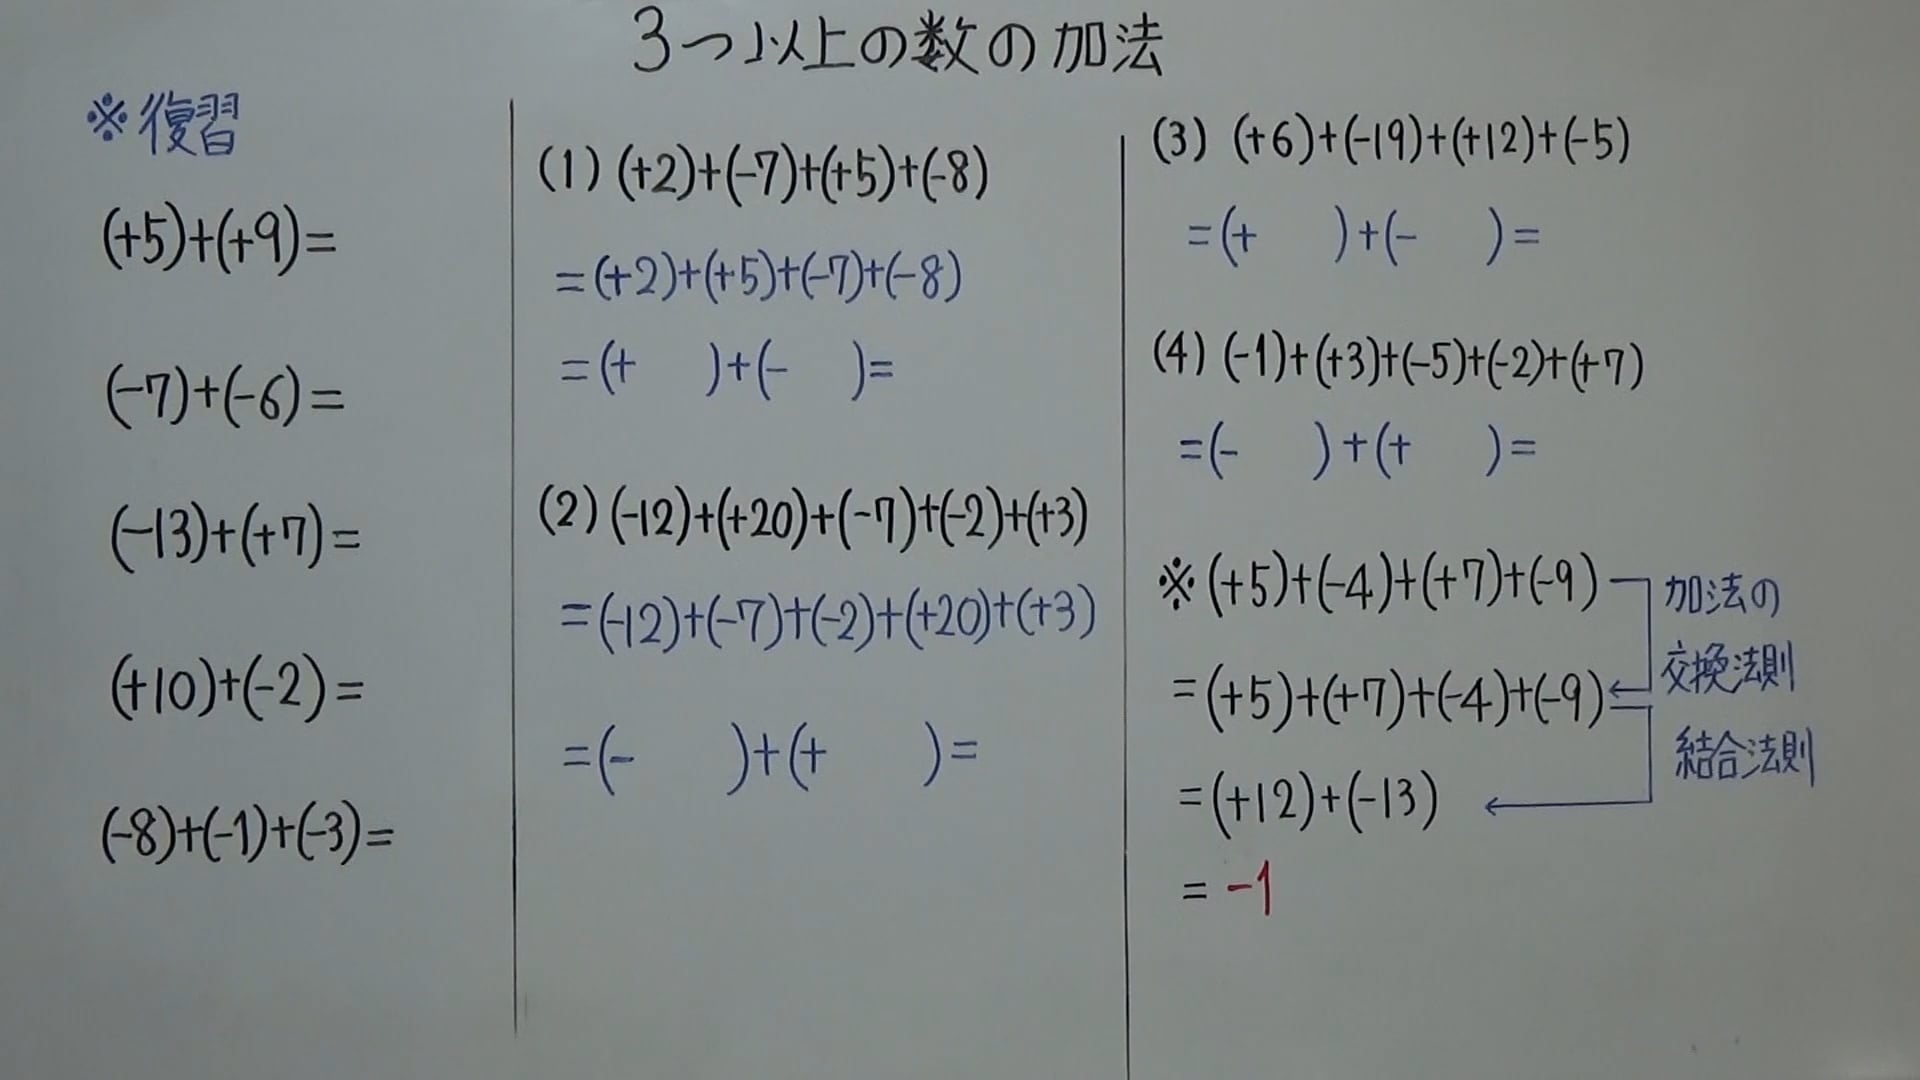 3つ以上の数の加法
※復習
(+5)+(+9)=
(-7)+(-6)=
(-13)+(+7)=
(+10)+(-2)=
(-8)+(-1)+(-3)=
(1) (+2)+(-7)+(+5)+(-8)
=(+2)+(+5)+(-7)+(-8)
=(+ )+(- )=
(2) (-12)+(+20)+(-7)+(-2)+(+3)
=(-12)+(-7)+(-2)+(+20)+(+3)
=(- )+(+ )=
(3) (+6)+(-19)+(+12)+(-5)
=(+ )+(- )=
(4) (-1)+(+3)+(-5)+(-2)+(+7)
=(- )+(+ )=
※(+5)+(-4)+(+7)+(-9)
=(+5)+(+7)+(-4)+(-9)
=(+12)+(-13)
= -1
加法の
交換法則
結合法則